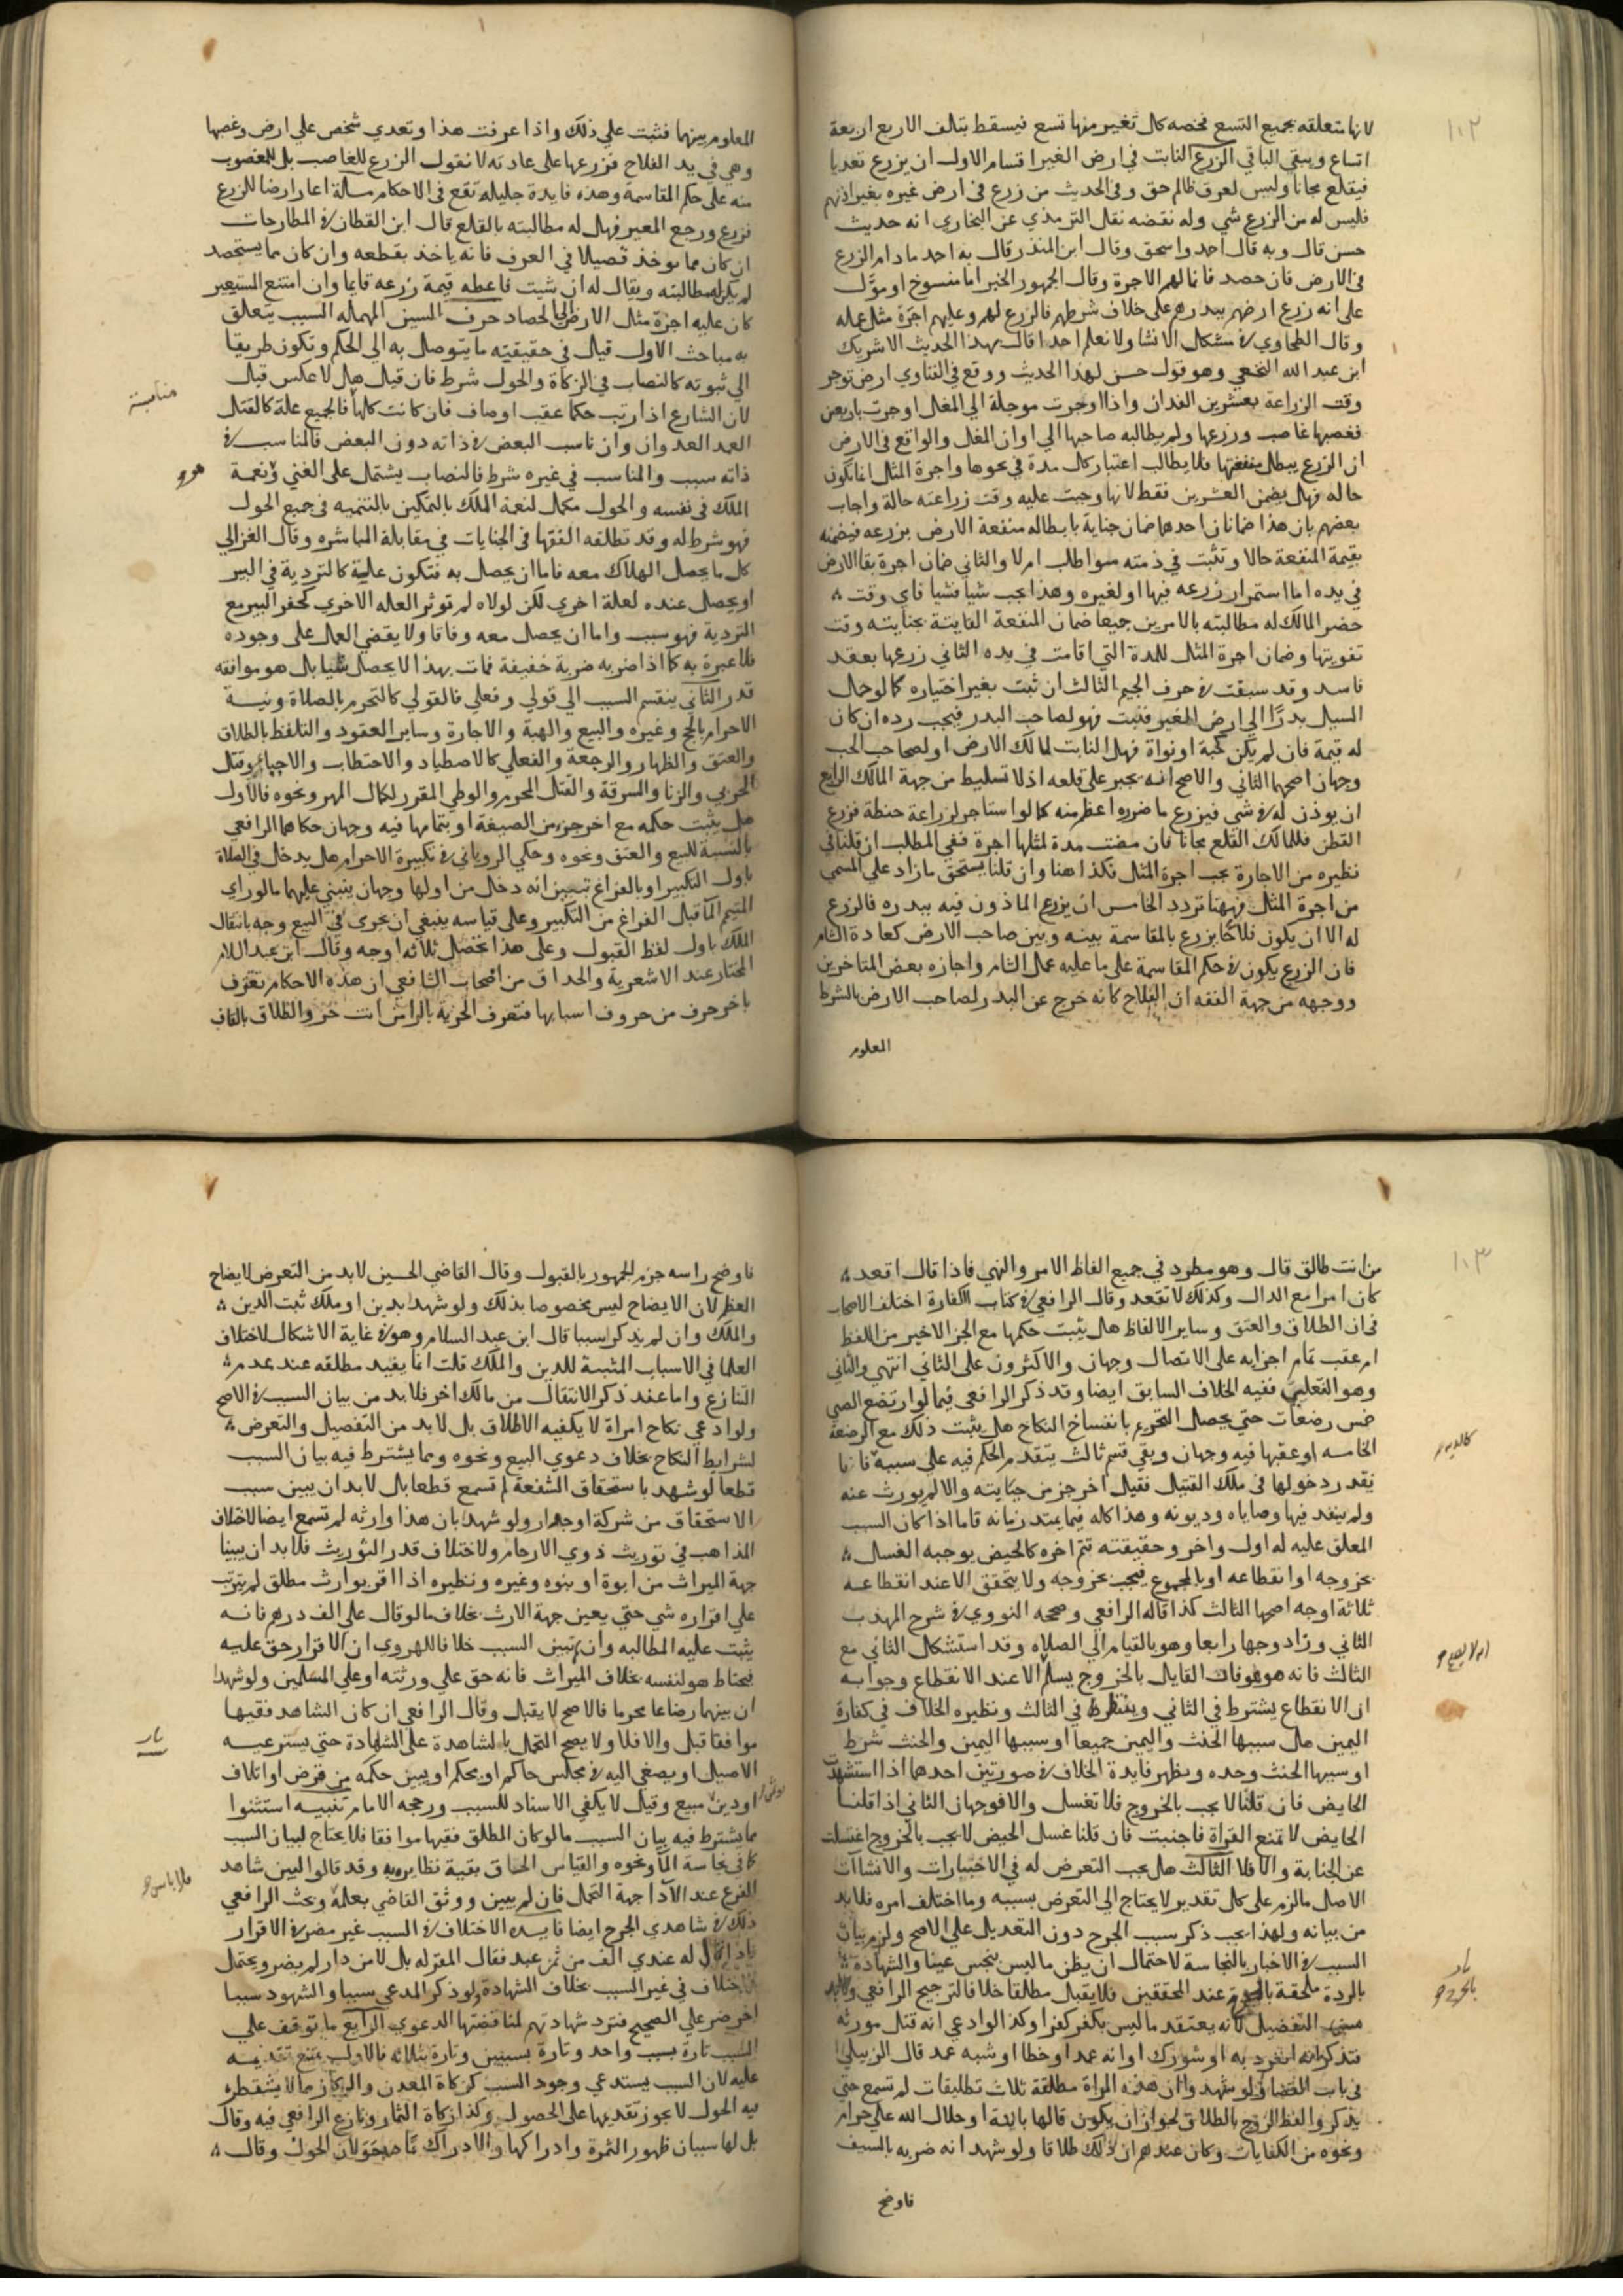 ١٠٢
لانها متعلقه بجميع التسع فخصه كل تغير منها تسع فيسقط بتالف الاربع اربعة
اتساع ويبقى الباقي الزرع النابت في ارض الغير اقسام الاول ان يزرع تعديا
فيقلع مجانا وليس لعرق ظالم حق وفى الحديث من زرع في ارض غيره بغير اذنهم
فليس له من الزرع شي وله نقضه نقل الترمذي عن البخاري انه حديث
حسن قال وبه قال احد واسحق وقال ابن المنذر قال به احد مادام الزرع
في الارض فان حصد فانما لهم الاجرة وقال الجمهور الخبر اما منسوخ او مؤل
على انه زرع ارضهم ببدرهم على خلاف شرطهم فالزرع لهم وعليهم اجرة مثل عمله
وقال الطحاوي في مشكل الاثار ولا نعلم احدا قال بهذا الحديث الا شريك
ابن عبد الله النخعي وهو قول حسن لهذا الحديث ووقع في الفتاوي ارض توجر
وقت الزراعة بعشرين الفدان واذا اوجرت موجلة الي المغل اوجرت باربعين
فغصبها غاصب وزرعها ولم يطالبه صاحبها الي اوان المغل والواقع في الارض
ان الزرع يبطل منفعتها فلا يطالب اعتبار كل مدة في نحوها واجرة المثل انما تكون
حاله فهل يضمن العشرين فقط لانها وجبت عليه وقت زراعته حالة واجاب
بعضهم بان هذا ضمانان احدهما ضمان جناية بابطاله منفعة الارض بزرعه فيضمنه
بقيمة المنفعة حالا وتثبت في ذمته سوا طلب ام لا والثاني ضمان اجرة بقا الارض
في يده اما استمرار زرعه فيها او لغيره وهذا يجب شيا فشيا فاي وقت
حضر المالك له مطالبته بالامرين جميعا ضمان المنفعة الفايتة بجنايته وقت
تفويتها وضمان اجرة المثل للمدة التي اقامت في يده الثاني زرعها بعقد
فاسد وقد سبقت في حرف الجيم الثالث ان ثبت بغير اختياره كما لو حمل
السيل بدرا الي ارض الغير فنبت فهو لصاحب البدر فيجب رده ان كان
له قيمة فان لم يكن كحبة او نواة فهل النابت لمالك الارض او لصاحب الحب
وجهان اصحهما الثاني والاصح انه يجبر على قلعه اذ لا تسليط من جهة المالك الرابع
ان يوذن له في شي فيزرع ما ضرره اعظم منه كما لو استاجر لزراعة حنطة فزرع
القطن فللمالك القلع مجانا فان مضت مدة لمثلها اجرة ففي المطلب ان قلنا في
نظيره من الاجارة يجب اجرة المثل فكذا هنا وان قلنا يستحق ما زاد على المسمي
من اجرة المثل فههنا تردد الخامس ان يزرع الماذون فيه ببدره فالزرع
له الا ان يكون فلاحا يزرع بالمقاسمة بينه وبين صاحب الارض كعادة الشام
فان الزرع يكون في حكم المقاسمة على ما عليه عمل الشام واجازه بعض المتاخرين
ووجهه من جهة الفقه ان الفلاح كانه خرج عن البدر لصاحب الارض بالشرط
المعلوم
المعلوم بينهما فثبت على ذلك واذا عرفت هذا وتعدي شخص علي ارض وغصبها
وهي في يد الفلاح فزرعها على عادته لا نقول الزرع للغاصب بل للمغصوب
منه على حكم المقاسمة وهذه فايدة جليله تقع في الاحكام مسالة اعار ارضا للزرع
فزرع ورجع المعير فهل له مطالبته بالقلع قال ابن القطان في المطارحات
ان كان مما يوخذ قصيلا في العرف فانه ياخذ بقطعه وان كان مما يستحصد
لم يكن له مطالبته ويقال له ان شيت فاعطه قيمة زرعه قايما وان امتنع المستعير
كان عليه اجرة مثل الارض الي الحصاد حرف السين المهمله السبب يتعلق
به مباحث الاول قيل في حقيقيته ما يتوصل به الي الحكم وتكون طريقا
الي ثبوته كالنصاب في الزكاة والحول شرط فان قيل هل لا عكس قيل
لان الشارع اذا رتب حكما عقب اوصاف فان كانت كلها فالجميع علة كالقتال
مناسبة
العمد العدوان وان ناسب البعض في ذاته دون البعض فالمناسب في
ذاته سبب والمناسب في غيره شرط فالنصاب يشتمل على الغني ونعمة
الملك في نفسه والحول مكمل لنعمة الملك بالتمكين بالتنميه في جميع الحول
فهو شرط له وقد تطلقه الفقها في الجنايات في مقابلة المباشره وقال الغزالي
كل ما يحصل الهلاك معه فاما ان يحصل به فتكون علية كالتردية في البير
او يحصل عنده لعلة اخري لكن لولاه لم توثر العله الاخري كحفر البير مع
التردية فهو سبب واما ان يحصل معه وفاقا ولا يقضي العمل على وجوده
فلا عبرة به كما اذا ضربه ضربة خفيفة فمات بهذا لا يحصل شيا بل هو موافقه
قدر الثاني ينقسم السبب الي قولي وفعلي فالقولي كالتحرم بالصلاة ونية
الاحرام بالحج وغيره والبيع والهبة والاجارة وساير العقود والتلفظ بالطلاق
والعتق والظهار والرجعة والفعلي كالاصطياد والاحتطاب والاحيا وقتل
الحربي والزنا والسرقة والقتل المحرم والوطي المقرر لكمال المهر ونحوه فالاول
هل يثبت حكمه مع اخر جز من الصيغة او بتمامها فيه وجهان حكاهما الرافعي
بالنسبة للبيع والعتق ونحوه وحكي الروياني في تكبيرة الاحرام هل يدخل في الصلاة
باول التكبير او بالفراغ تبين انه دخل من اولها وجهان ينبني عليهما ما لو راي
المتيمم الما قبل الفراغ من التكبير وعلى قياسه ينبغي ان يجرى في البيع وجه بانتقال
الملك باول لفظ القبول وعلى هذا تحصل ثلاثه اوجه وقال ابن عبد السلام
المختار عند الاشعرية والحذاق من اصحاب الشافعي ان هذه الاحكام تقترف
باخر حرف من حروف اسبابها فتقترف الحرية بالرا من انت حر والطلاق بالقاف
١٠٣
من انت طالق قال وهو مطرد في جميع الفاظ الامر والنهي فاذا قال اقعد
كان امرا مع الدال وكذلك لا تقعد وقال الرافعي في كتاب الكفارة اختلف الاصحاب
في ان الطلاق والعتق وساير الالفاظ هل يثبت حكمها مع الجز الاخير من اللفظ
ام عقب تمام اجزايه على الاتصال وجهان والاكثرون على الثاني انتهي والثاني
وهو الفعلي ففيه الخلاف السابق ايضا وقد ذكر الرافعي فيما لو ارتضع الصبي
خمس رضعات حتي يحصل التحريم بانفساخ النكاح هل يثبت ذلك مع الرضعة
الخامسه او عقبها فيه وجهان وبقي قسم ثالث يتقدم الحكم فيه على سببه فانا
كالديه
نقدر دخولها في ملك القتيل فقيل اخر جز من حياته والا لم يورث عنه
ولم ينفد فيها وصاياه وديونه وهذا كله فيما يمتد زمانه فاما اذا كان السبب
المعلق عليه له اول واخر وحقيقته تتم اخره كالحيض يوجبه الغسل
بخروجه او انقطاعه او بالمجموع فيجب بخروجه ولا يتحقق الا عند انقطاعه
ثلاثة اوجه اصحها الثالث كذا قاله الرافعي وصححه النووي في شرح المهدب
الثاني وزاد وجها رابعا وهو بالقيام الي الصلاه وقد استشكل الثاني مع
الثالث فانه هو هو فان القايل بالخروج يسلم الا عند الانقطاع وجوابه
ان الانقطاع يشترط في الثاني وينظر في الثالث ونظيره الخلاف في كفارة
اليمين هل سببها الحنث واليمين جميعا او سببها اليمين والحنث شرط
او سببها الحنث وحده ويظهر فايدة الخلاف في صورتين احدهما اذا استشهدت
الحايض فان قلنا لا يجب بالخروج فلا تغسل والا فوجهان الثاني اذا قلنا
الحايض لا تمنع القراة فاجنبت فان قلنا غسل الحيض لا يجب بالخروج اغتسلت
عن الجنابة والا فلا الثالث هل يجب التعرض له في الاخبارات والانشاات
الاصل ما لزم على كل تقدير لا يحتاج الي التعرض بسببه وما اختلف امره فلا بد
من بيانه ولهذا يجب ذكر سبب الجرح دون التعديل على الاصح ولزم بيان
السبب في الاخبار بالنجاسة لاحتمال ان يظن ما ليس بنجس عينا والشهادة
بالردة ملحقة عند المحققين فلا يقبل مطلقا خلافا لترجيح الرافعي
التفصيل لانه يعتقد ما ليس بكفر كفرا وكذا لو ادعي انه قتل مورثه
فتذكر انه انفرد به او شورك او انه عمد او خطا او شبه عمد قال الزبيلي
في باب القضا ولو شهد وان هذه المراة مطلقة ثلاث تطليقات لم تسمع حتي
يذكر والفظ الزوج بالطلاق لجواز ان يكون قالها باينة او حلال الله علي حرام
ونحوه من الكنايات وكان عندهم ان ذلك طلاقا ولو شهد انه ضربه بالسيف
فاوضح
فاوضح راسه جزم الجمهور بالقبول وقال القاضي الحسين لا بد من التعرض لايضاح
العظم لان الايضاح ليس مخصوصا بذلك ولو شهد بدين او ملك ثبت الدين
والملك وان لم يذكر سببا قال ابن عبد السلام وهو في غاية الاشكال لاختلاف
العلما في الاسباب المثبتة للدين والملك قلت انما يفيد مطلقه عند عدم
التنازع واما عند ذكر الانتقال من مالك اخر فلا بد من بيان السبب في الاصح
ولو ادعي نكاح امراة لا يكفيه الاطلاق بل لا بد من التفصيل والتعرض
لشرايط النكاح بخلاف دعوي البيع ونحوه ومما يشترط فيه بيان السبب
قطعا لو شهد باستحقاق الشفعة لم تسمع قطعا بل لا بد ان يبين سبب
الاستحقاق من شركة او جوار ولو شهد بان هذا وارثه لم تسمع ايضا لاختلاف
المذاهب في توريث ذوي الارحام ولاختلاف قدر التوريث فلا بد ان يبينا
جهة الميراث من ابوة او بنوه وغيره ونظيره اذا اقر بوارث مطلق لم يترتب
علي اقراره شي حتي يعين جهة الارث بخلاف ما لو قال علي الف درهم فانه
يثبت عليه المطالبه وان لم يبين السبب خلافا للهروي ان الاقرار حق عليه
فيحتاط هو لنفسه بخلاف الميراث فانه حق علي ورثته او علي المسلمين ولو شهدا
ان بينهما رضاعا محرما فالاصح لا يقبل وقال الرافعي ان كان الشاهد فقيها
موافقا قبل والا فلا ولا يصح التحمل بالمشاهدة على الشهادة حتي يسترعيه
الاصيل او يصغي اليه في مجلس حاكم او محكم او يبين حكمه من قرض او اتلاف
او دين مبيع وقيل لا يكفي الاسناد للسبب ورجحه الامام تنبيه استثنوا
مما يشترط فيه بيان السبب ما لو كان المطلق فقيها موافقا فلا يحتاج لبيان السبب
كما في نجاسة الما ونحوه والقياس الحاق بقية نظايره به وقد قالوا ليبين شاهد
الفرع عند الادا جهة التحمل فان لم يبين ووثق القاضي بعلمه وبحث الرافعي
ذلك في شاهدي الجرح ايضا فايده الاختلاف في السبب غير مضر في الاقرار
فاذا قال له عندي الف من ثمن عبد فقال المقر له بل لا من دار لم يضر ويحتمل
الاختلاف في غير السبب بخلاف الشهادة ولو ذكر المدعي سببا والشهود سببا
اخر ضر علي الصحيح فترد شهادتهم لمناقضتها الدعوي الرابع ما توقف علي
السبب تارة بسبب واحد وتارة بسببين وتارة بثلاثه فالاول يمتنع تقديمه
عليه لان السبب يستدعي وجود السبب كزكاة المعدن والركاز مما لا يشترط
فيه الحول لا يجوز تقديمها على الحصول وكذا زكاة الثمار ونازع الرافعي فيه وقال
بل لها سببان ظهور الثمرة وادراكها والادراك بمنزلة حولان الحول وقال